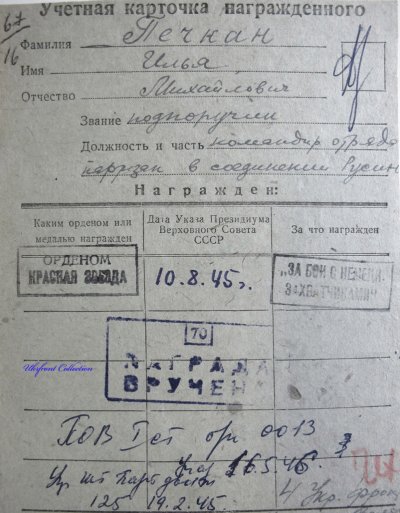 67
16
Учетная карточка награжденного
Фамилия Печкан
Имя Илья
Отчество Михайлович
Звание подпоручик
Должность и часть командир отряда
партизан в соединении Русин
Награжден:
Каким орденом или медалью награжден
Дата Указа Президиума Верховного Совета СССР
За что награжден
ОРДЕНОМ
КРАСНАЯ ЗВЕЗДА
10.8.45г.
„ЗА БОИ С НЕМЕЦК.
ЗАХВАТЧИКАМИ"
70
НАГРАДА
ВРУЧЕНА
Ukrfront Collection
ПОВ I ст 0013
6.5.45.
Укр шт Парт движ
125 19.2.45.
4 Укр. фронт